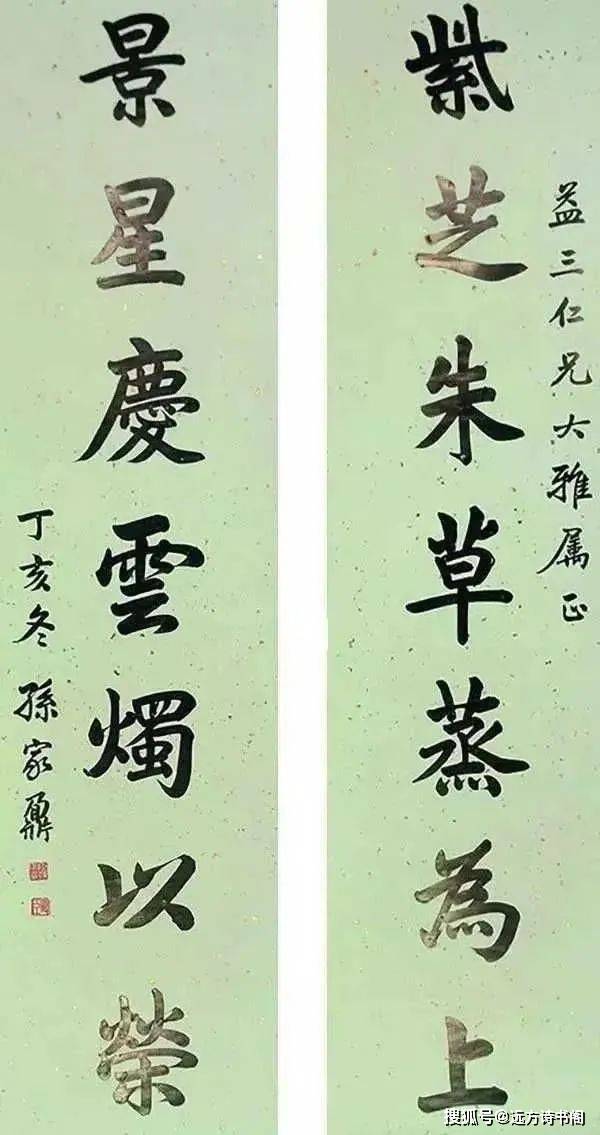 益三仁兄大雅属正
紫芝朱草蒸為上
景星慶雲燭以榮
丁亥冬孫家鼐
搜狐号@远方诗书阁